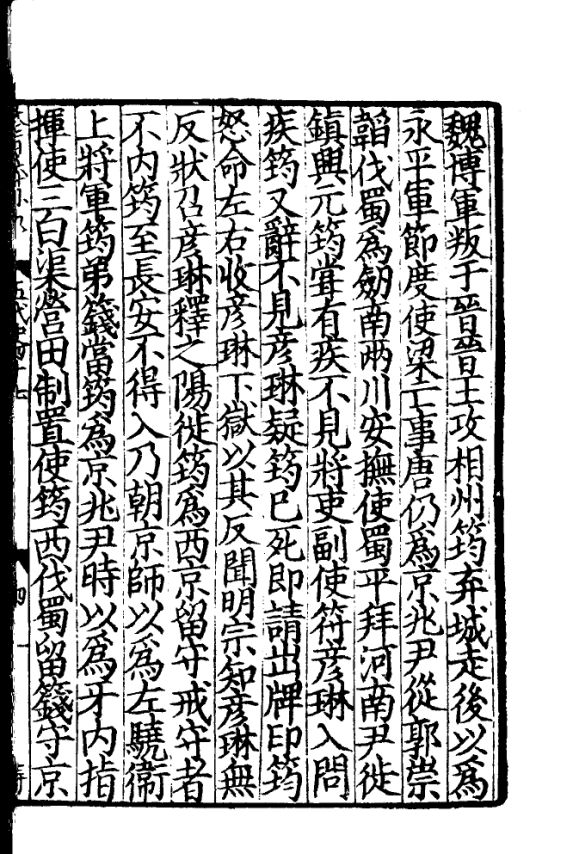 魏博軍叛于晉晉王攻相州筠弃城走後以爲
永平軍節度使梁亡事唐仍爲京兆尹從郭崇
韜伐蜀爲劒南兩川安撫使蜀平拜河南尹徙
鎮興元筠甞有疾不見將吏副使符彦琳入問
疾筠又辭不見彦琳疑筠已死即請出牌印筠
怒命左右收彦琳下獄以其反聞明宗知彦琳無
反狀召彦琳釋之陽徙筠爲西京留守戒守者
不内筠至長安不得入乃朝京師以爲左驍衛
上將軍筠弟籛當筠爲京兆尹時以爲牙内指
揮使三白渠營田制置使筠西伐蜀留籛守京